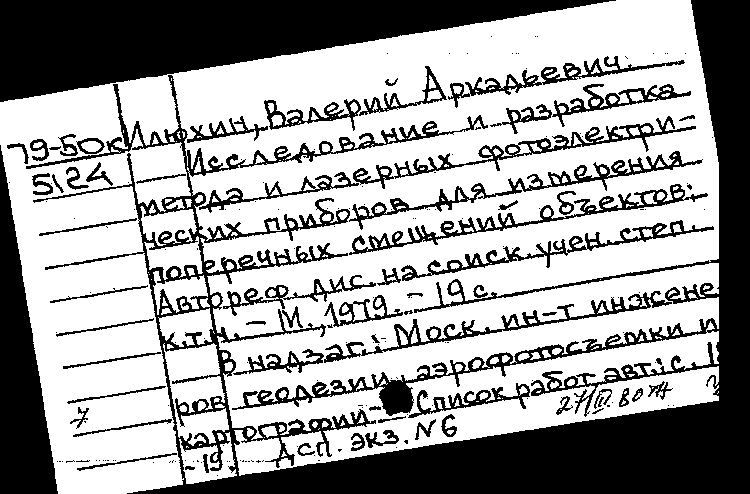 79-50к Илюхин, Валерий Аркадьевич.
5124 Исследование и разработка
метода и лазерных фотоэлектри-
ческих приборов для измерения
поперечных смещений объектов:
Автореф. дис. на соиск. учен. степ.
к.т.н. – М., 1979. – 19 с.
В надзаг.: Моск. ин-т инжене
ров геодезии, аэрофотосъемки и
картографии – Список работ авт.: с. 18
-19. ДСП. экз. N6
7